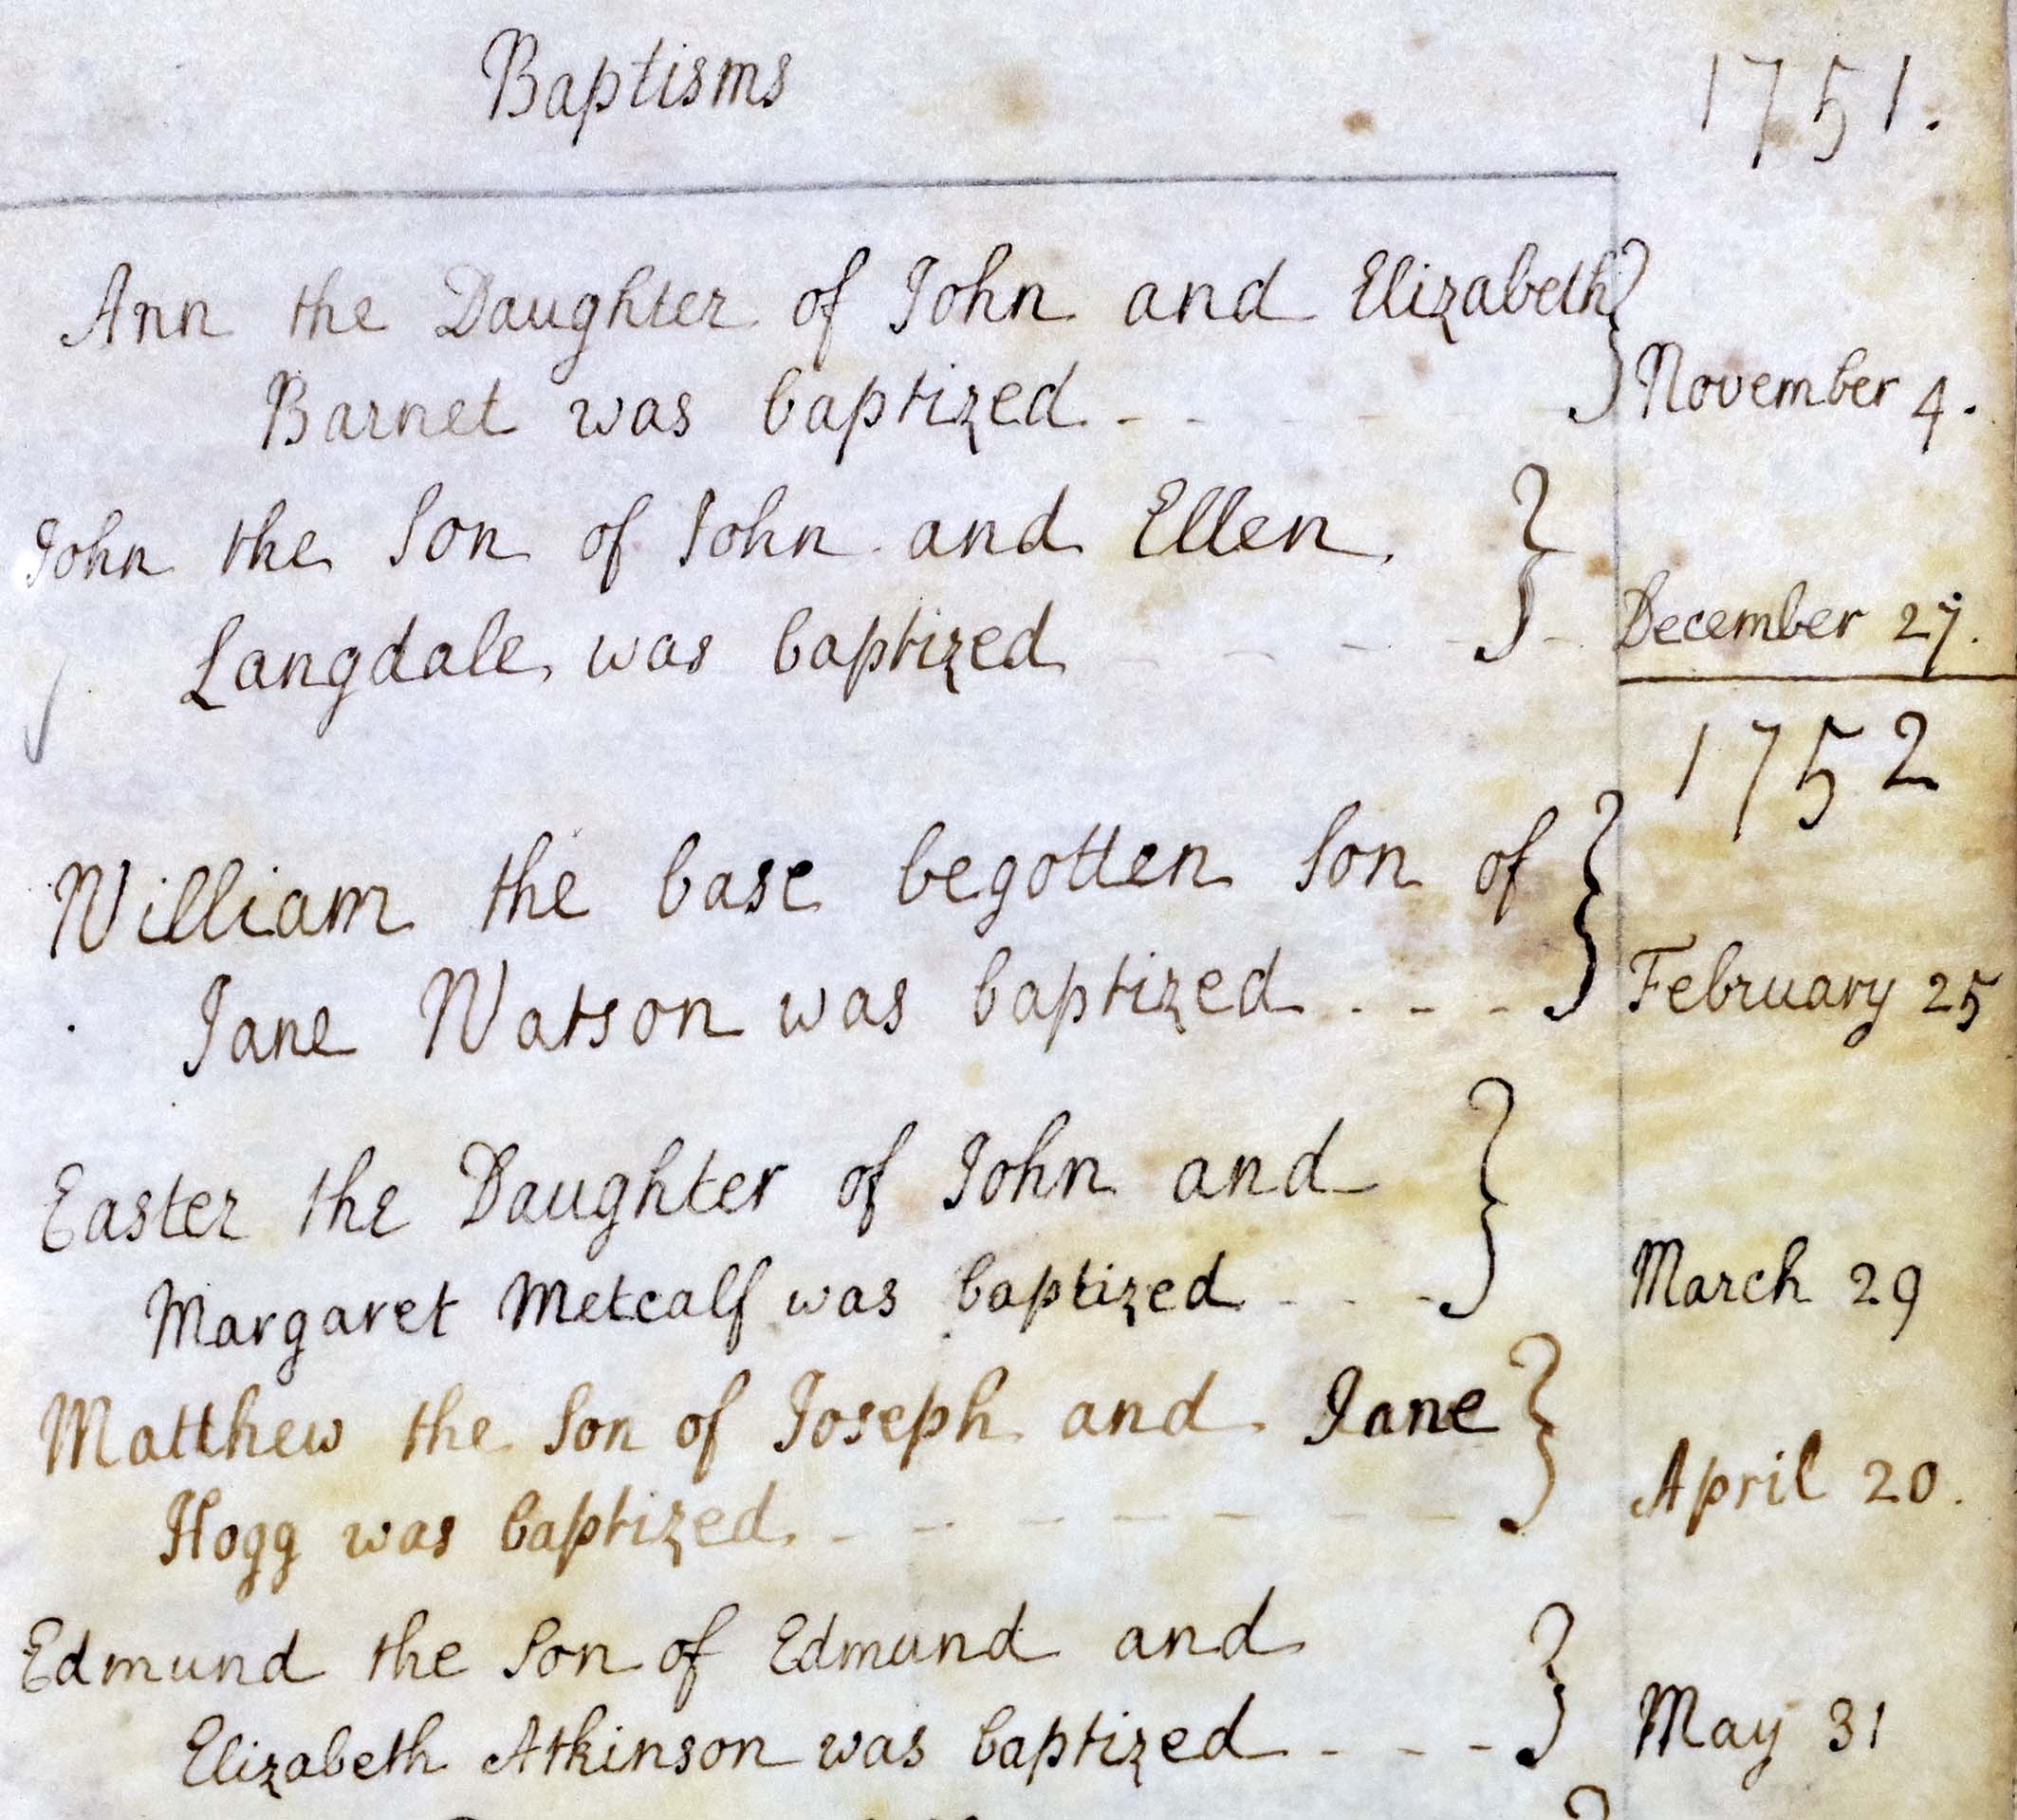 Baptisms 1751.
Ann the Daughter of John and Elizabeth
Barnet was baptized - - - - November 4.
John the Son of John and Ellen
Langdale was baptized - - - - December 27.
1752
William the base begotten Son of
Jane Watson was baptized - - - February 25
Easter the Daughter of John and
Margaret Metcalf was baptized - - - March 29
Matthew the Son of Joseph and Jane
Hogg was baptized - - - - - - - April 20.
Edmund the Son of Edmund and
Elizabeth Atkinson was baptized - - - May 31